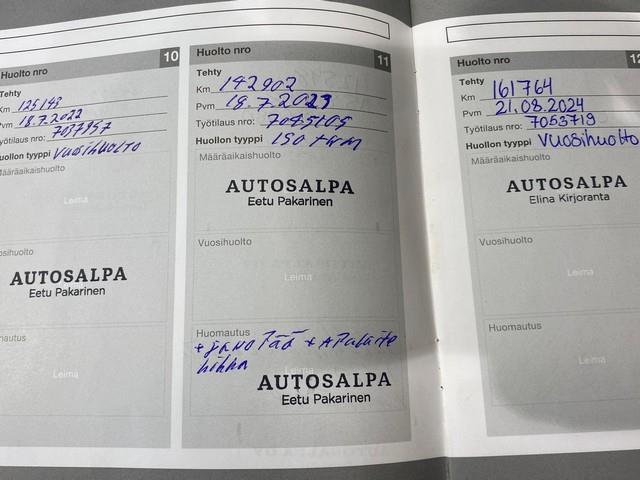 Huolto nro 10
Tehty
Km 125143
Pvm 18.7.2022
Työtilaus nro: 7037957
Huollon tyyppi Vuosihuolto
Määräaikaishuolto
Leima
osihuolto
AUTOSALPA
Eetu Pakarinen
nautus
Leima
Huolto nro 11
Tehty
Km 142902
Pvm 18.7.2023
Työtilaus nro: 7045105
Huollon tyyppi 150 tkm
Määräaikaishuolto
AUTOSALPA
Eetu Pakarinen
Vuosihuolto
Leima
Huomautus
+ jakopää + apulaite
hihna
Leima
AUTOSALPA
Eetu Pakarinen
Huolto nro 12
Tehty
Km 161764
Pvm 21.08.2024
Työtilaus nro: 7053719
Huollon tyyppi Vuosihuolto
Määräaikaishuolto
AUTOSALPA
Elina Kirjoranta
Vuosihuolto
Leima
Huomautus
Leima